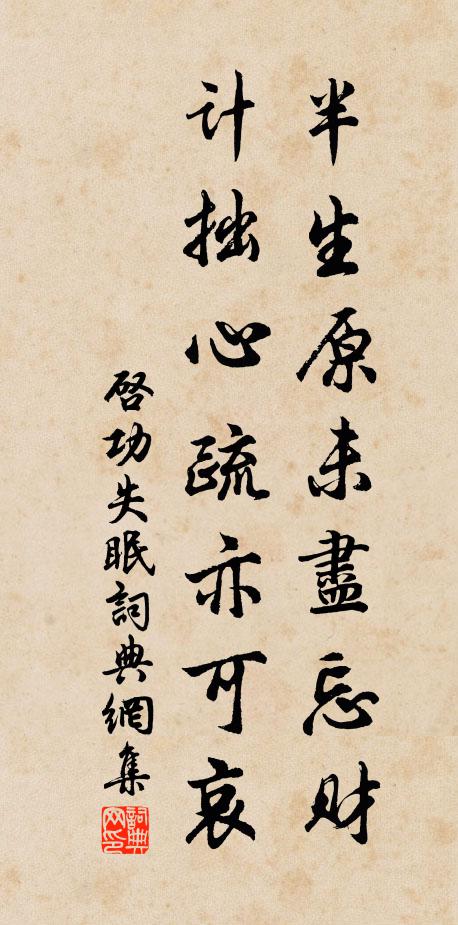 半生原未盡忘財
計拙心疏亦可哀
啓功失眠詞典網集
詞典网印